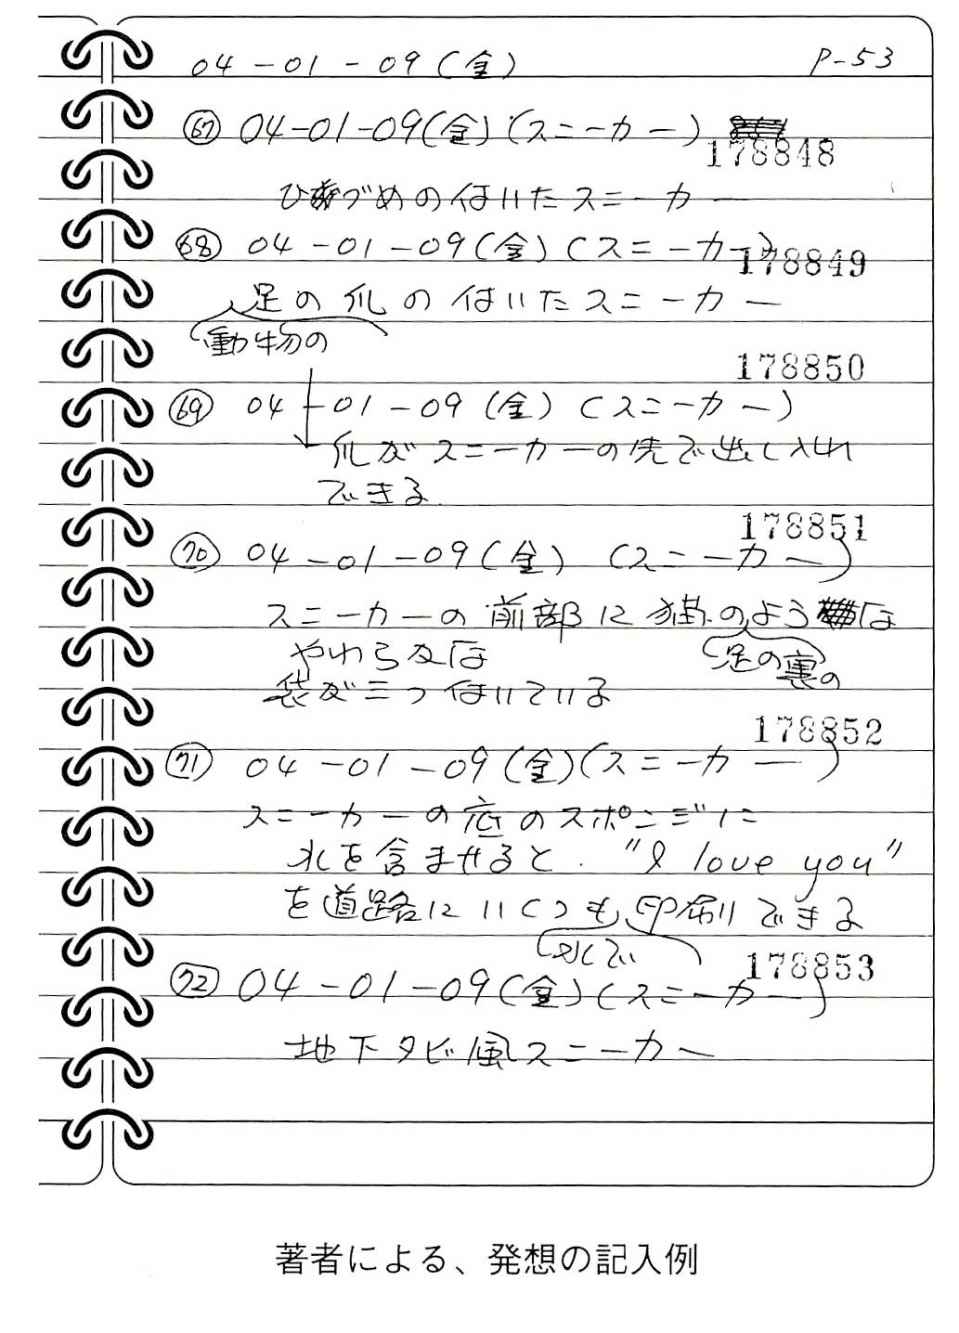 04-01-09(金) P-53
67 04-01-09(金)(スニーカー)
178848
ひづめの付いたスニーカー
68 04-01-09(金)(スニーカー)
178849
足の爪の付いたスニーカー
動物の
178850
69 04-01-09(金)(スニーカー)
爪がスニーカーの先で出し入れ
できる
178851
70 04-01-09(金)(スニーカー)
スニーカーの前部に猫のような
足の裏の
やわらかな
袋が三つ付いている
178852
71 04-01-09(金)(スニーカー)
スニーカーの底のスポンジに
水を含ませると. "I love you"
を道路にいくつも印刷できる
水で
178853
72 04-01-09(金)(スニーカー)
地下タビ風スニーカー
著者による、発想の記入例